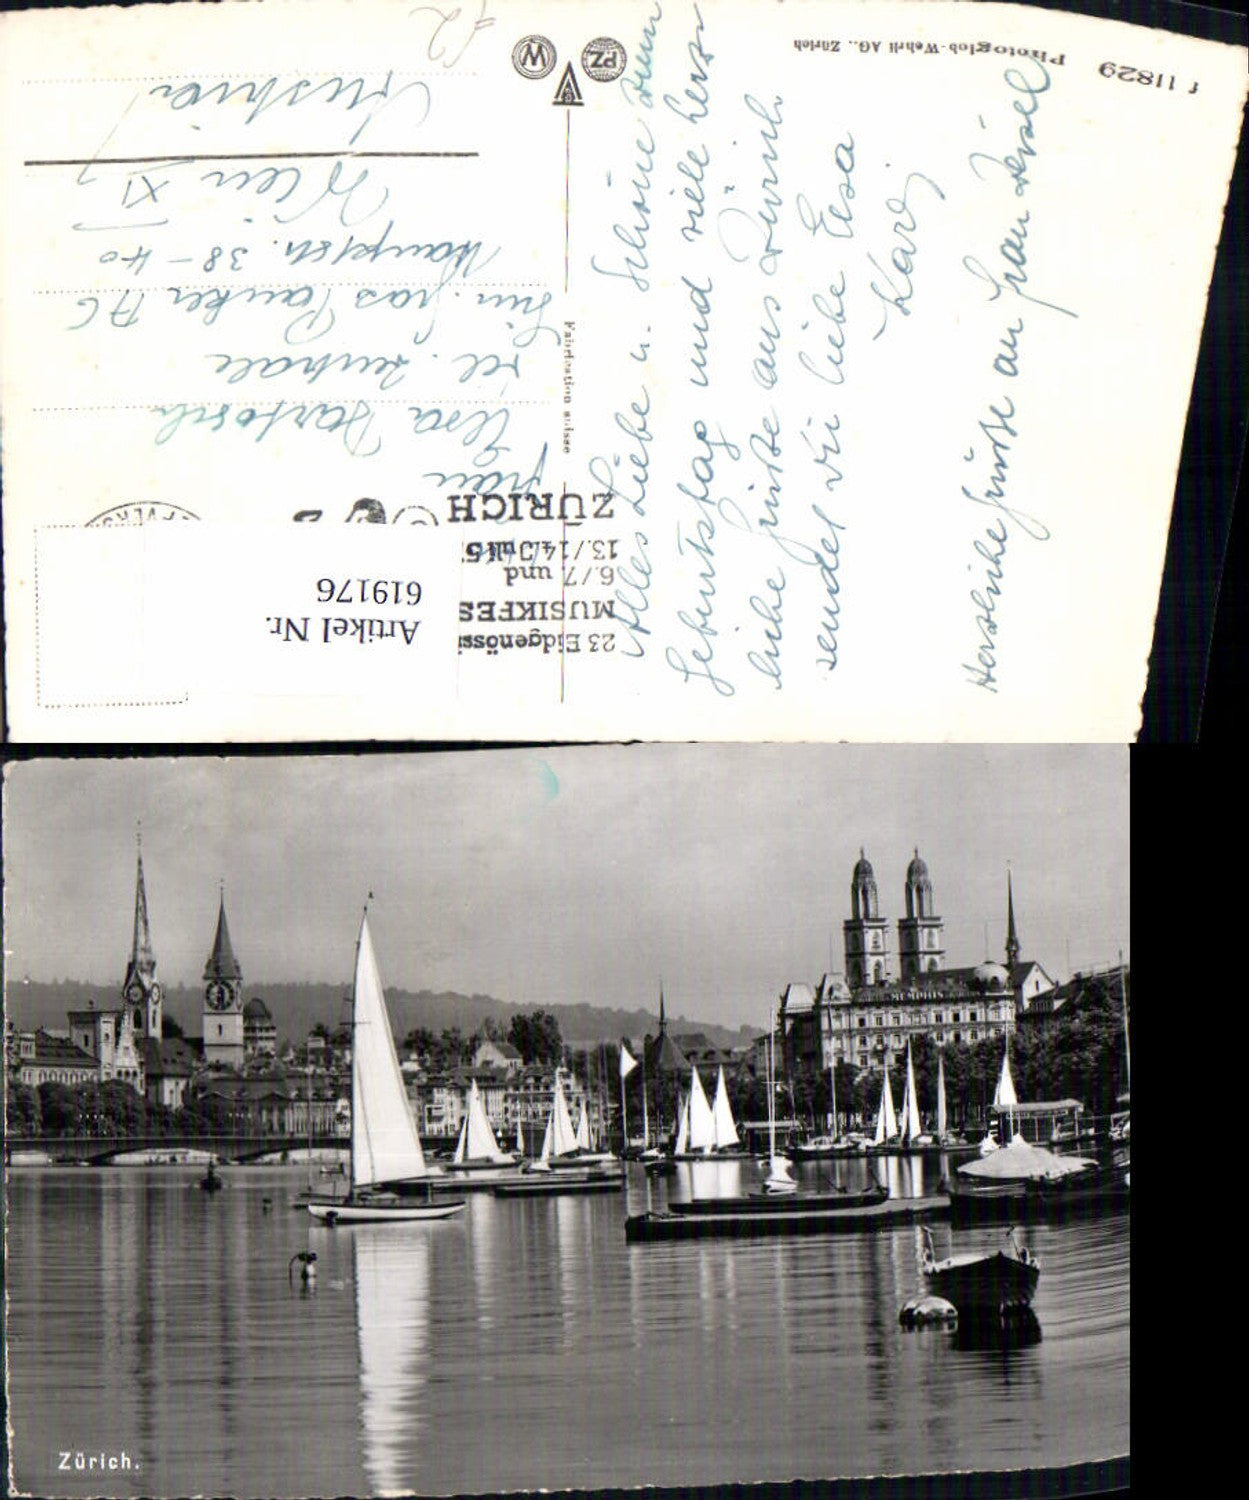 f 11829 Photoglob-Wehrli AG., Zürich
W
PZ
Fabrication suisse
23 Eidgenössi
MUSIKFES
6./7. und
13./14. Juli 5
ZÜRICH
Artikel Nr.
619176
Frau
Elsa Bartosch
Tel. Zentrale
Hauptstr. 38-40
Wien XI
Austria
Alles Liebe u. Schöne zum
Geburtstag und viele herz
liche Grüße aus Zürich
sendet Dir liebe Elsa
Herzliche Grüße an Frau
MEMPHIS
Zürich.